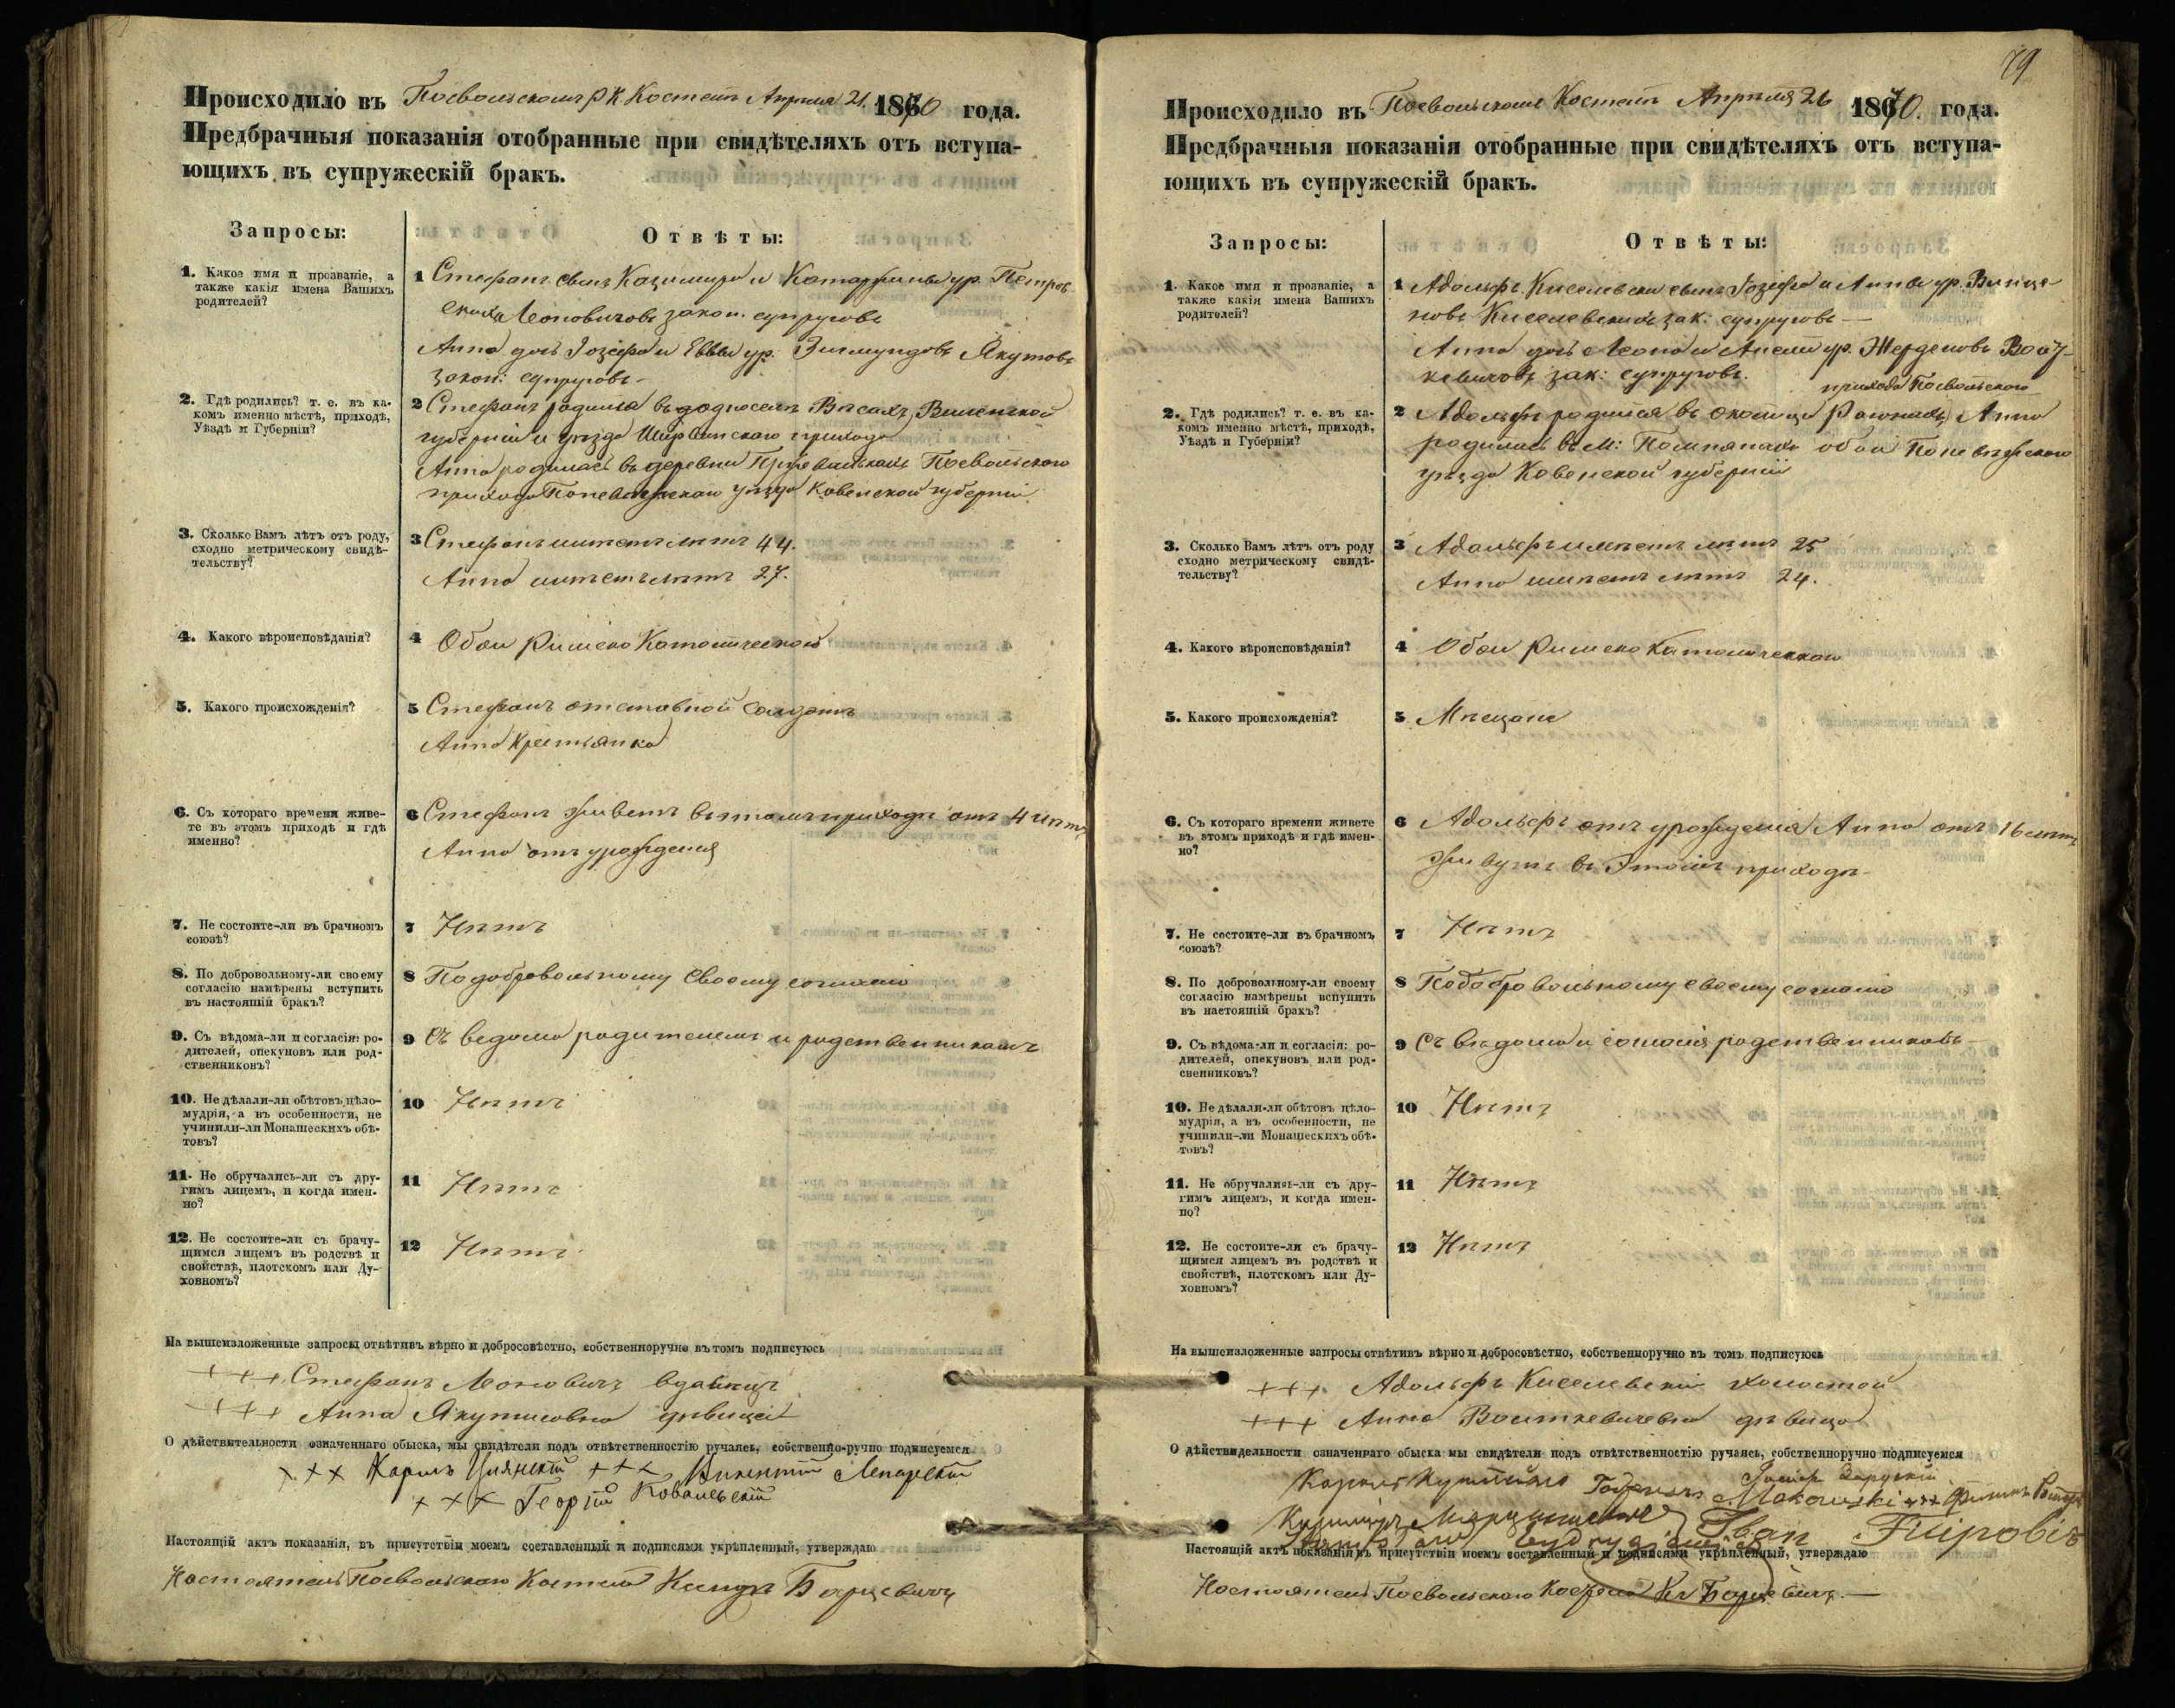 Происходило въ Посвольскомъ Р. К. Костелѣ Апрѣля 21. 1870 года.
Предбрачныя показанія отобранные при свидѣтеляхъ отъ вступа-
ющихъ въ супружескій бракъ.
Запросы: Отвѣты:
1. Какое имя и прозваніе, а
также какія имена Вашихъ
родителей?
1 Стефанъ сынъ Казимира и Катаржины ур. Петров
скихъ Леоновичовъ закон. супруговъ
Анна дочь Іозефа и Еввы ур. Зигмундовъ Якутовъ
закон: супруговъ
2. Гдѣ родились? т. е. въ ка-
комъ именно мѣстѣ, приходѣ,
Уѣздѣ и Губерніи?
2 Стефанъ родился въ Виленской
губерніи и уѣзда Ширвинскаго прихода
Анна родилась въ деревни Посвольскаго
прихода Поневѣжскаго уѣзда Ковенской губерніи.
3. Сколько Вамъ лѣтъ отъ роду,
сходно метрическому свидѣ-
тельству?
3 Стефанъ имѣетъ лѣтъ 44.
Анна имѣетъ лѣтъ 27.
4. Какого вѣроисповѣданія?
4 Обои Римско Католической
5. Какого происхожденія?
5 Стефанъ отставной солдатъ
Анна крестьянка
6. Съ котораго времени живе-
те въ этомъ приходѣ и гдѣ
именно?
6 Стефанъ живетъ въ томъ приходѣ отъ 4 лѣтъ
Анна отъ урождения
7. Не состоите-ли въ брачномъ
союзѣ?
7 Нѣтъ
8. По добровольному-ли своему
согласію намѣрены вступить
въ настоящій бракъ?
8 По добровольному своему согласію
9. Съ вѣдома-ли и согласія: ро-
дителей, опекуновъ или род-
ственниковъ?
9 Съ ведома родителемъ и родственникамъ
10. Не дѣлали-ли обѣтовъ цѣло-
мудрія, а въ особенности, не
учинили-ли Монашескихъ обѣ-
товъ?
10 Нѣтъ
11. Не обручались-ли съ дру-
гимъ лицемъ, и когда имен-
но?
11 Нѣтъ
12. Не состоите-ли съ брачу-
щимся лицемъ въ родствѣ и
свойствѣ, плотскомъ или Ду-
ховномъ?
12 Нѣтъ
На вышеизложенные запросы отвѣтивъ вѣрно и добросовѣстно, собственноручно въ томъ подписуюсь
+++ Стефанъ Леоновичъ вдовецъ
+++ Анна Якутисовна дѣвица
О дѣйствительности означеннаго обыска, мы свидѣтели подъ отвѣтственностію ручаясь, собственно-ручно подписуемся
+++ Кароль +++ Викентій
+++ Георгій Ковалевскій
Настоящій актъ показанія, въ присутствіи моемъ составленный и подписями укрѣпленный, утверждаю
Настоятель Посвольскаго Костела Ксендзъ Борцевичъ
79
Происходило въ Посвольскомъ Костелѣ Апрѣля 26 1870. года.
Предбрачныя показанія отобранные при свидѣтеляхъ отъ вступа-
ющихъ въ супружескій бракъ.
Запросы: Отвѣты:
1. Какое имя и прозваніе, а
также какія имена Вашихъ
родителей?
1 Адольфъ Киселевски сынъ Іозефа и Анны ур.
Киселевскихъ зак: супруговъ
Анна дочь Леона и Анели ур. Жерденовъ Войт-
кевичовъ зак: супруговъ.
прихода Посвольскаго
2. Гдѣ родились? т. е. въ ка-
комъ именно мѣстѣ, приходѣ,
Уѣздѣ и Губерніи?
2 Адольфъ родился въ околицѣ Анна
родилась въ М: Помпянахъ обои Поневѣжскаго
уѣзда Ковенской губерніи
3. Сколько Вамъ лѣтъ отъ роду
сходно метрическому свидѣ-
тельству?
3 Адольфъ имѣетъ лѣтъ 25
Анна имѣетъ лѣтъ 24.
4. Какого вѣроисповѣданія?
4 Обои Римско Католическаго
5. Какого происхожденія?
5 Мѣщане
6. Съ котораго времени живете
въ этомъ приходѣ и гдѣ имен-
но?
6 Адольфъ отъ урождения Анна отъ 16 лѣтъ
живутъ въ этомъ приходѣ
7. Не состоите-ли въ брачномъ
союзѣ?
7 Нѣтъ
8. По добровольному-ли своему
согласію намѣрены вспупить
въ настоящій бракъ?
8 По добровольному своему согласію
9. Съ вѣдома-ли и согласія: ро-
дителей, опекуновъ или род-
свенниковъ?
9 Съ вѣдома и согласія родственниковъ
10. Не дѣлали-ли обѣтовъ цѣло-
мудрія, а въ особенности, не
учинили-ли Монашескихъ обѣ-
товъ?
10 Нѣтъ
11. Не обручались-ли съ дру-
гимъ лицемъ, и когда имен-
но?
11 Нѣтъ
12. Не состоите-ли съ брачу-
щимся лицемъ въ родствѣ и
свойствѣ, плотскомъ или Ду-
ховномъ?
12 Нѣтъ
На вышеизложенные запросы отвѣтивъ вѣрно и добросовѣстно, собственноручно въ томъ подписуюсь
+++ Адольфъ Киселевскій холостой
+++ Анна Войткевичевна дѣвица
О дѣйствидельности означеннаго обыска мы свидѣтели подъ отвѣтственностію ручаясь, собственноручно подписуемся
Makowski +++
Иван
Настоящій актъ показанія въ присутствіи моемъ составленный и подписями укрѣпленный, утверждаю
Настоятель Посвольскаго Костела Кс Борцевичъ.